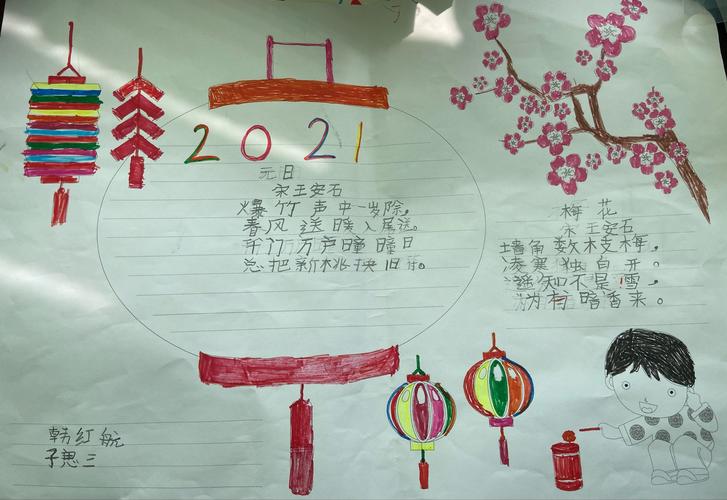 2021
元日
宋王安石
爆竹声中一岁除，
春风送暖入屠送。
千门万户曈曈日
总把新桃换旧符。
梅花
宋王安石
墙角数枝梅，
凌寒独自开。
遥知不是雪，
为有暗香来。
韩红航
子思三